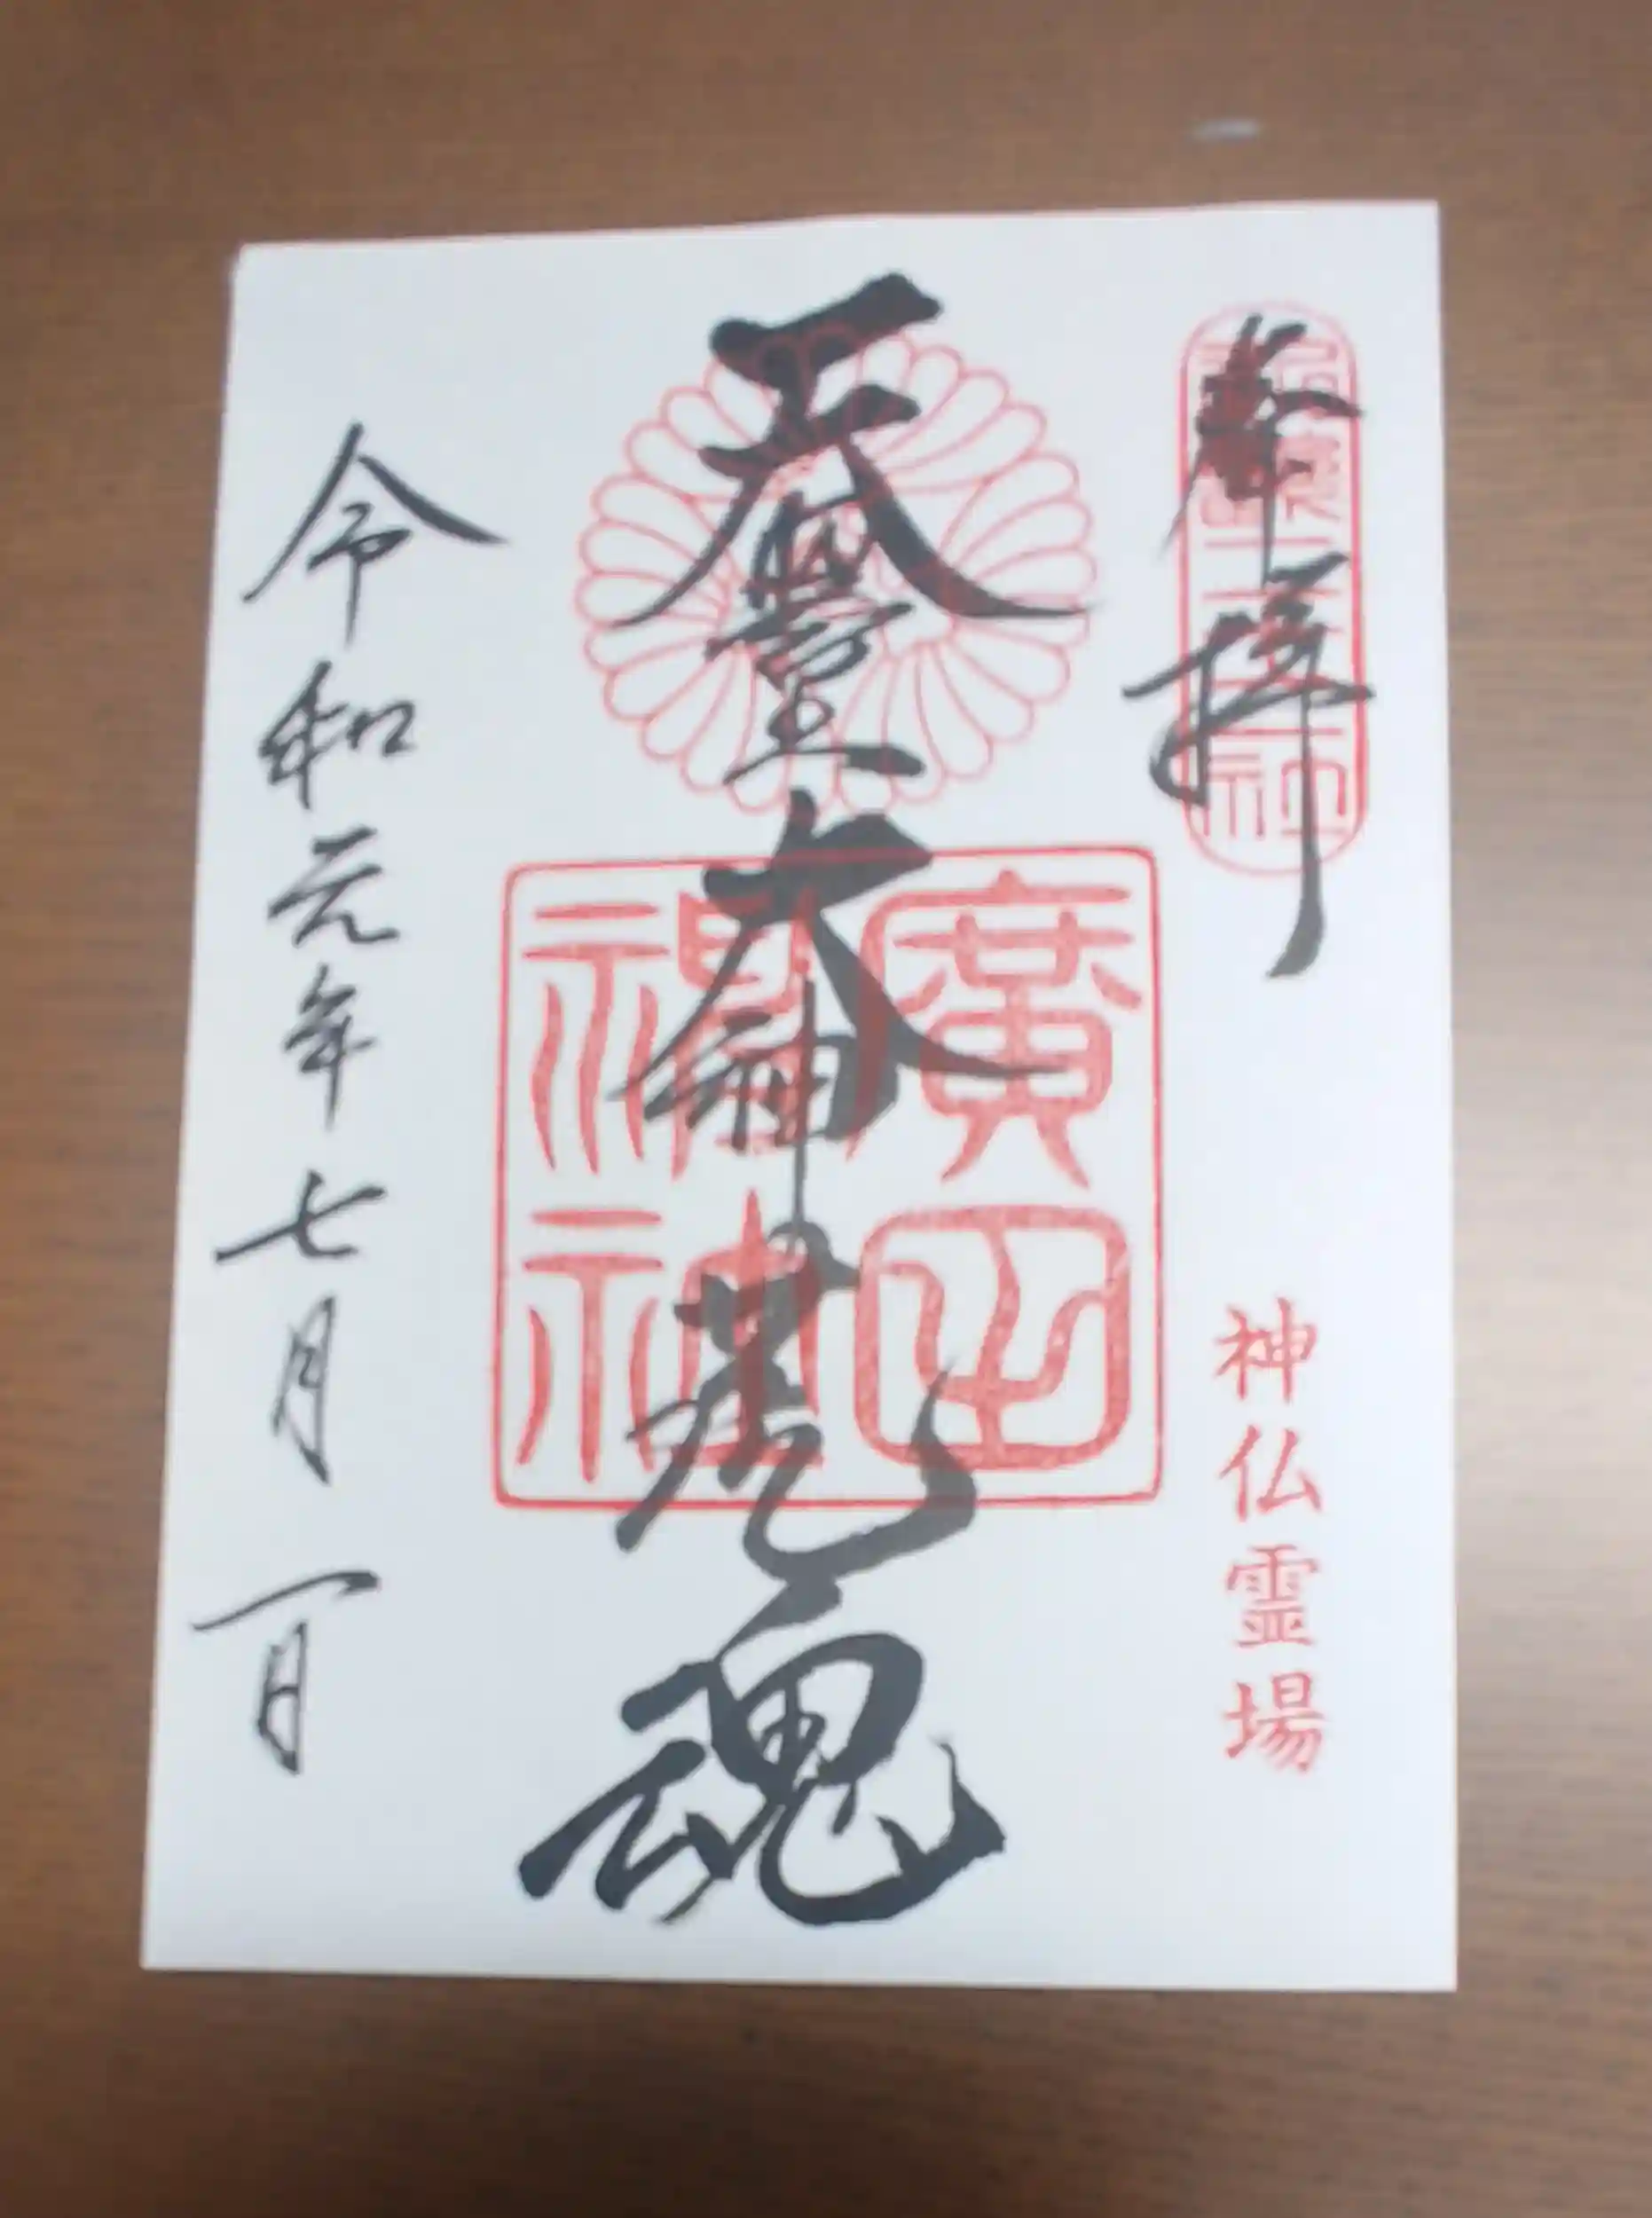 奉拝
神仏霊場
天照大神荒魂
廣田神社
令和元年七月一日